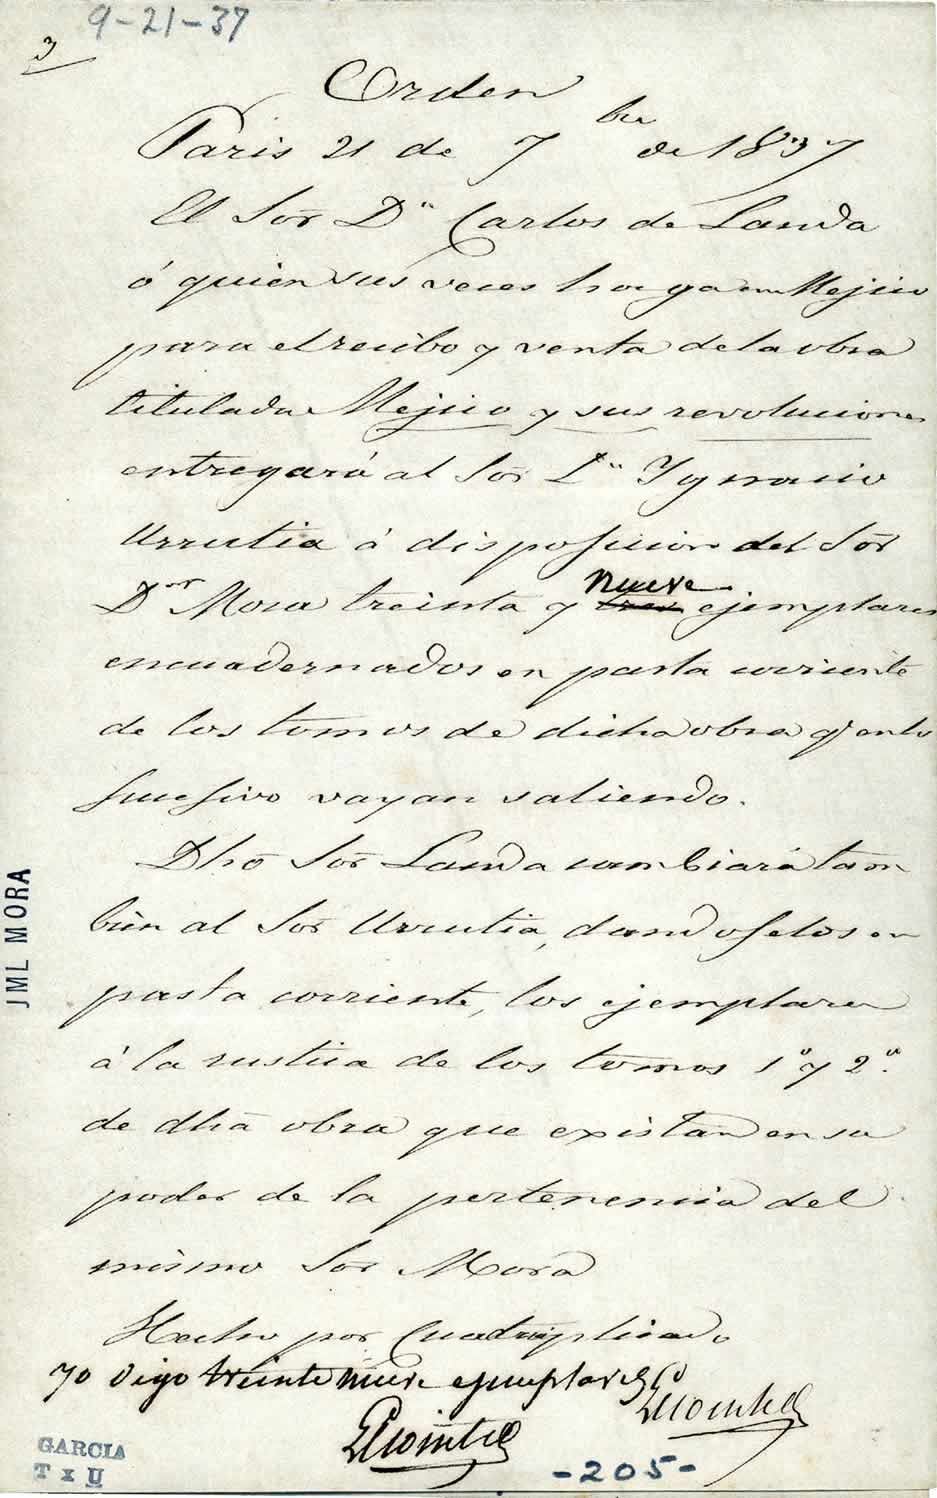 9-21-37
3
Orden
Paris 21 de 7bre de 1837
El Sōr Dn Carlos de Landa
ó quien sus veces haga en Mejico
para el recibo y venta de la obra
titulada Mejico y sus revoluciones
entregará al Sōr Ln Ygnacio
Urrutia á disposicion del Sōr
Dor Mora treinta y tres nueve ejemplares
encuadernados en pasta corriente
de los tomos de dicha obra q. en lo
sucesivo vayan saliendo.
Dhō Sōr Landa cambiará tam
bien al Sōr Urrutia, dandoselos en
pasta corriente, los ejemplares
á la rustica de los tomos 1º y 2º.
de dhā obra que existan en su
poder de la pertenencia del
mismo Sōr Mora
Hecho por Cuadruplicado
yo Digo treinta nueve ejemplares
Lecointe
Lecointe
JML MORA
GARCIA
T x U
-205-